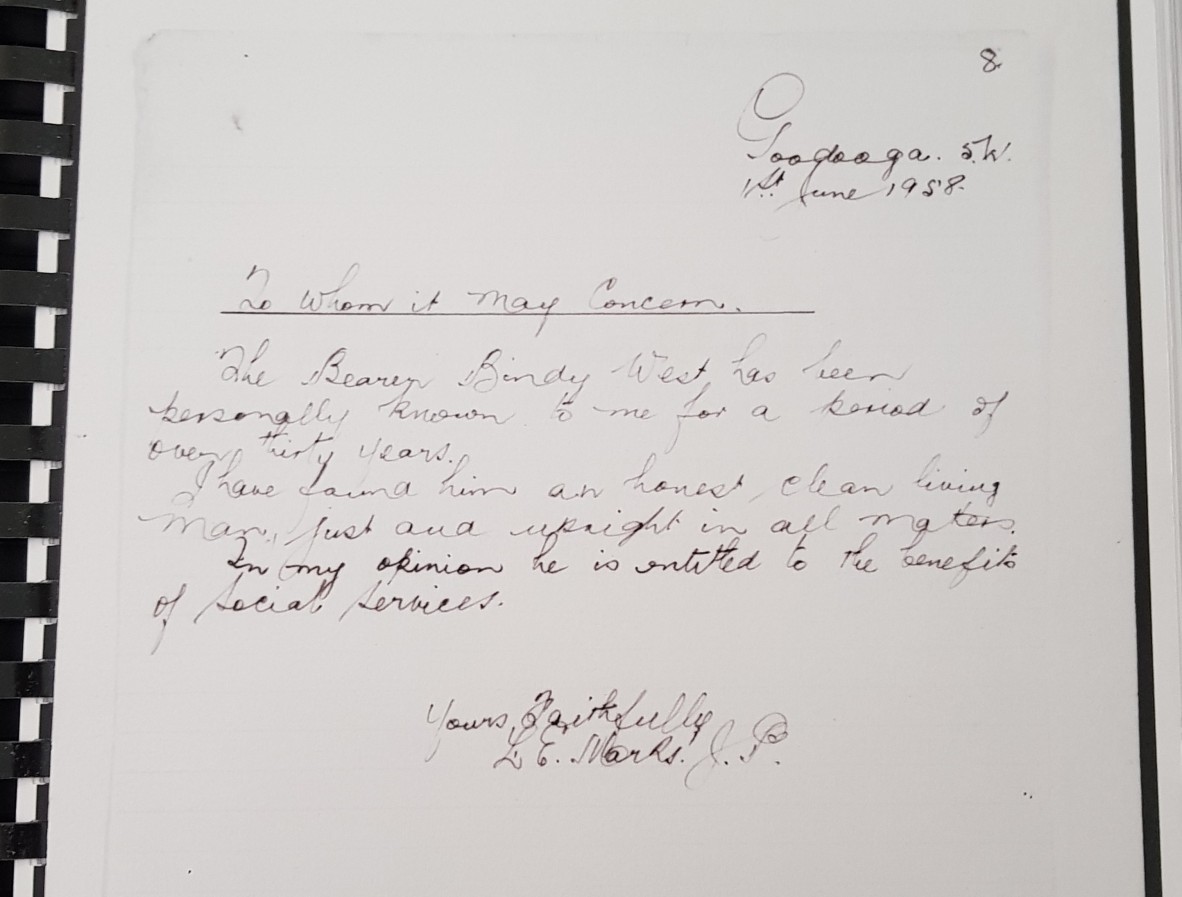 8
Goodooga. S.W.
1st June 1958.
To Whom it May Concern.
The Bearer Bindy West, has been
personally known to me for a period of
over thirty years.
I have found him an honest, clean living
Man, just and upright in all maters.
In my opinion he is entitled to the benefits
of Social Services.
Yours Faithfully
L. E. Marks. J. P.